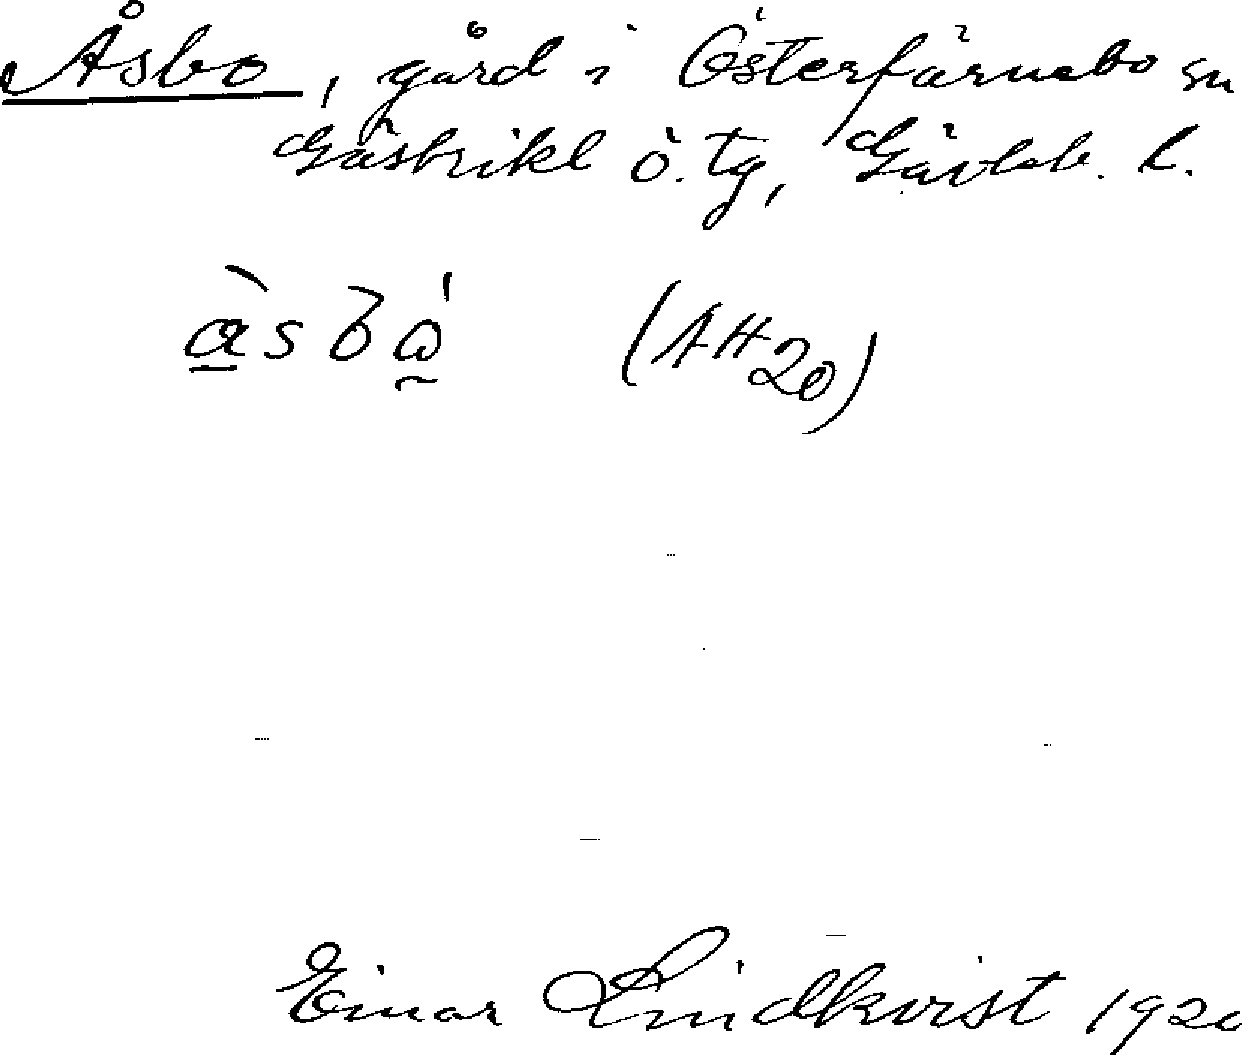 Åsbo, gård i Österfärnebo sn
Gästrikl ö. tg, Gävleb. l.
(AH20)
Einar Lindkvist 1920